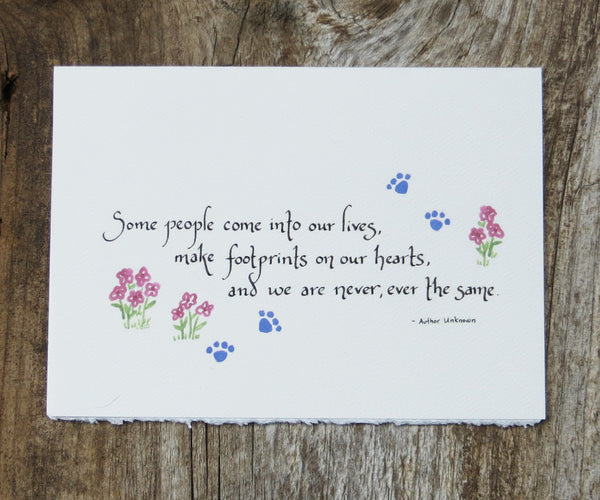 Some people come into our lives,
make footprints on our hearts,
and we are never, ever the same.
- Author Unknown